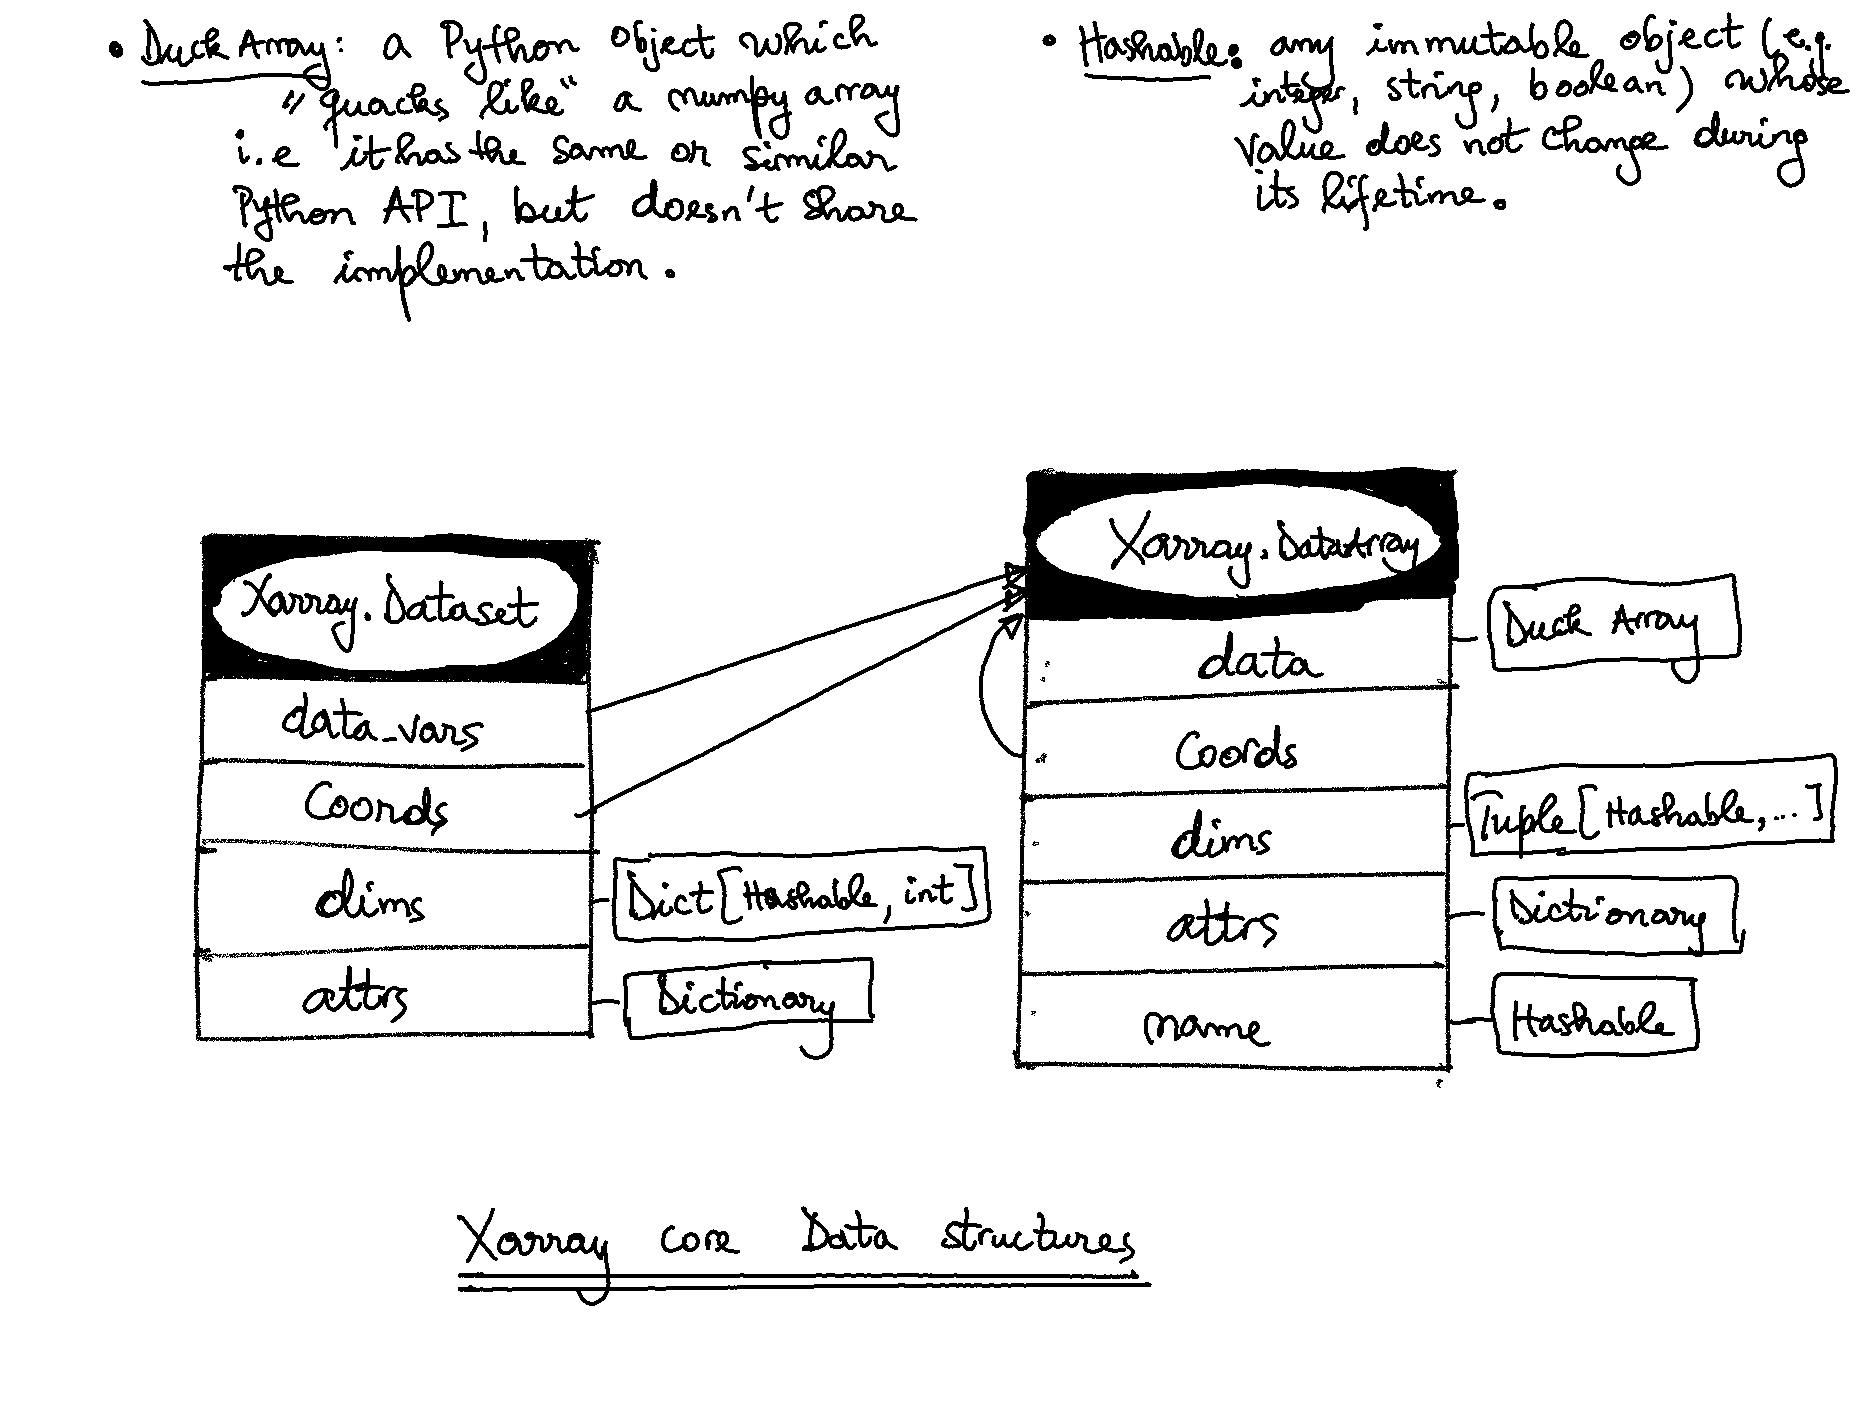 • Duck Array: a Python object which
"quacks like" a numpy array
i.e it has the same or similar
Python API, but doesn't share
the implementation.
• Hashable: any immutable object (e.g.
integer, string, boolean) whose
value does not change during
its lifetime.
Xarray.Dataset
data_vars
Coords
dims
Dict[Hashable, int]
attrs
Dictionary
Xarray.DataArray
data
Duck Array
Coords
dims
Tuple[Hashable,...]
attrs
Dictionary
name
Hashable
Xarray core Data structures